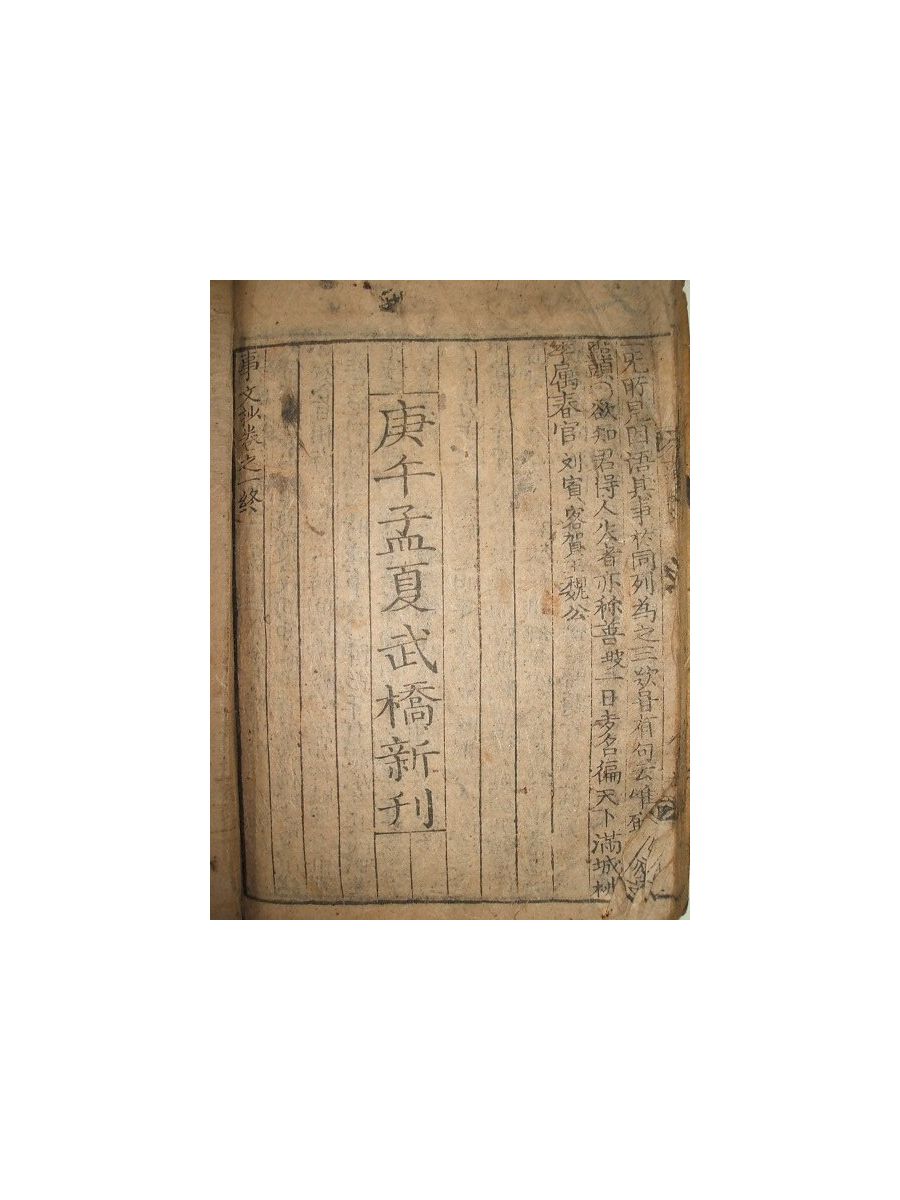 无所見因語其事於同列為之三歎㝵有句云唯
點頭○欲知君得人失者亦稱善
一日声名徧天下滿城桃
李属春官 刘賓客賀王魏公
庚午孟夏武橋新刊
事文抄卷之一終